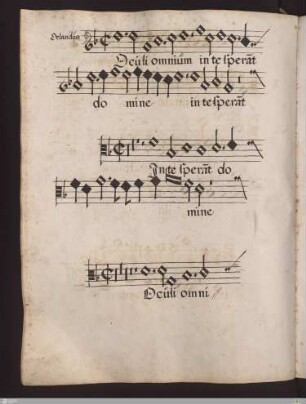 Orlandus
Oculi omnium in te sperāt
do mine in te sperāt
In te sperāt do
mine
Oculi omni